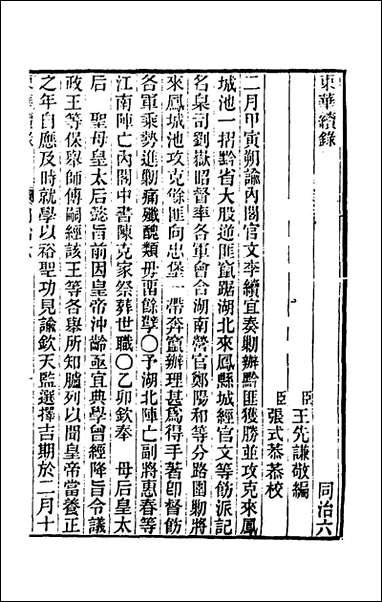 東華續錄　同治六
臣王先謙敬編
臣張式恭恭校
二月甲寅朔諭內閣官文李續宜奏勦辦黔匪獲勝並攻克來鳳
城池一摺黔省大股逆匪竄踞湖北來鳳縣城經官文等飭派記
名臬司劉嶽昭督率各軍會合湖南營官鄭陽和等分路圍勦將
來鳳城池攻克餘匪向忠堡一帶奔竄辦理甚為得手著卽督飭
各軍乘勢進勦痛殲醜類毋畱餘孽〇予湖北陣亡副將惠春等
江南陣亡內閣中書陳克家祭葬世職〇乙卯欽奉　母后皇太
后　聖母皇太后懿旨前因皇帝沖齡亟宜典學曾經降旨令議
政王等保舉師傅嗣經該王等各舉所知臚列以聞皇帝當養正
之年自應及時就學以裕聖功見諭欽天監選擇吉期於二月十